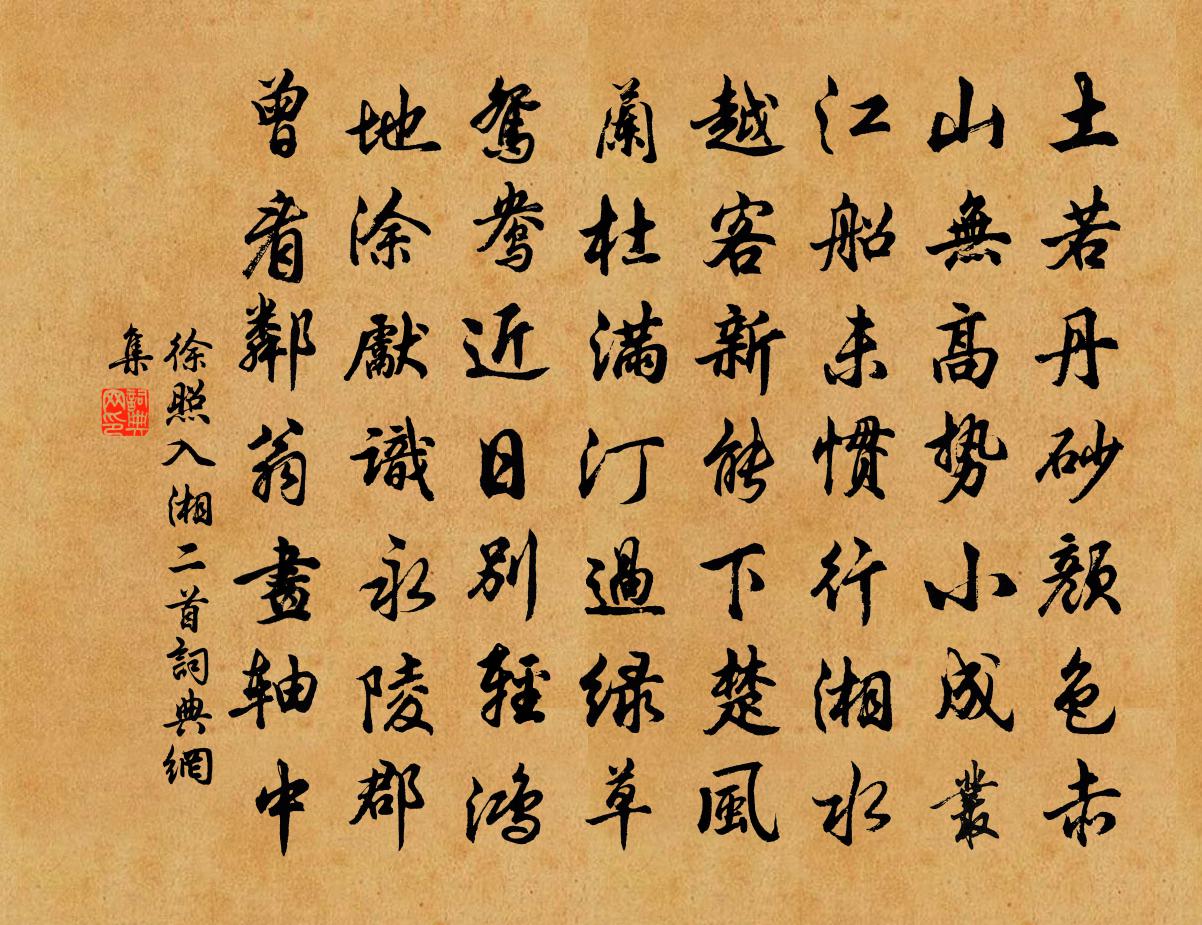 土若丹砂顔色赤
山無高勢小成叢
江船未慣行湘水
越客新能下楚風
蘭杜滿汀過綠草
鴛鴦近日別輕鴻
地除獻識永陵郡
曾看鄰翁畫軸中
徐照入湘二首詞典網
集
詞典網印